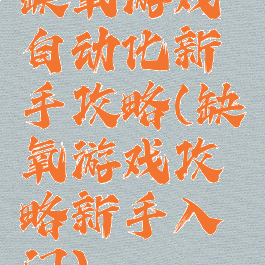 缺氧游戏
自动化新
手攻略(缺
氧游戏攻
略新手入
门)